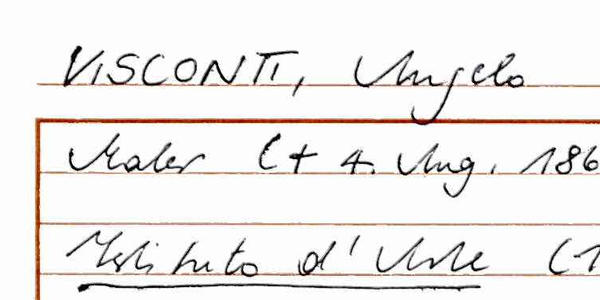 VISCONTI, Angelo
Maler († 4. Aug. 186
Istituto d'Arte (1